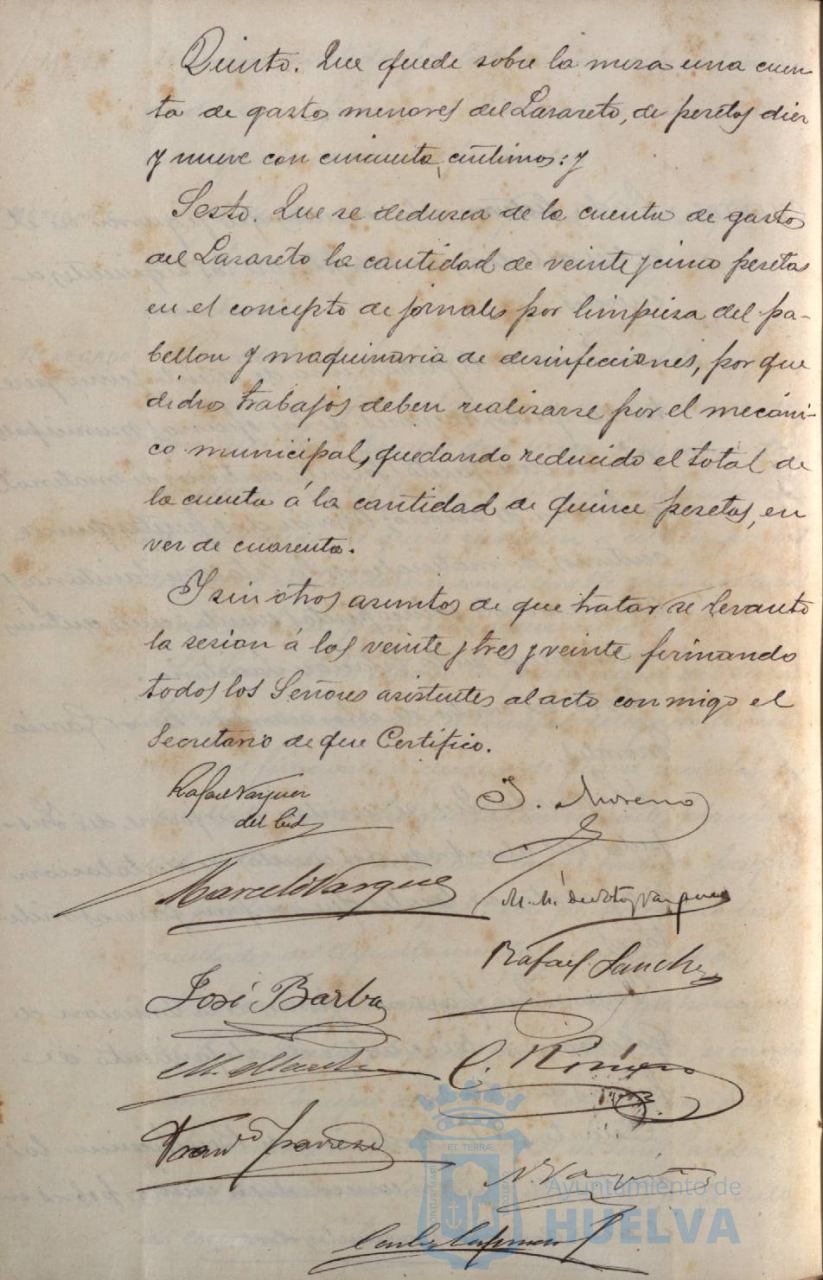 Quinto. Que quede sobre la mesa una cuen
ta de gasto menores del Lazareto, de pesetas diez
y nueve con cincuenta céntimos: y
Sesto. Que se deduzca de la cuenta de gasto
del Lazareto la cantidad de veinte y cinco pesetas
en el concepto de jornales por limpieza del pa-
bellon y maquinaria de desinfecciones, por que
dichos trabajos deben realizarse por el mecáni-
co municipal, quedando reducido el total de
la cuenta á la cantidad de quince pesetas, en
vez de cuarenta.
Y sin otros asuntos de que tratar se levanto
la sesion á las veinte y tres y veinte firmando
todos los Señores asistentes al acto conmigo el
Secretario de que Certifico.
Rafael Vazquez
del Cid
J. Moreno
Marcelo Vazquez
Rafael Sanchez
José Barba
C. Romero
Ayuntamiento de
HUELVA